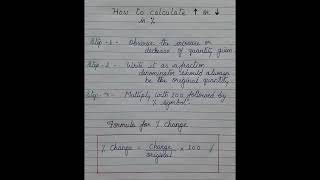 How to calculate ↑ or ↓
in %
Step -1- Observe the increase or
decrease of quantity given
Step -2- Write it as a fraction
denominator should always
be the original quantity
Step -3- Multiply with 100 followed by
% symbol
Formula for % Change
% Change = Change / original x 100 %